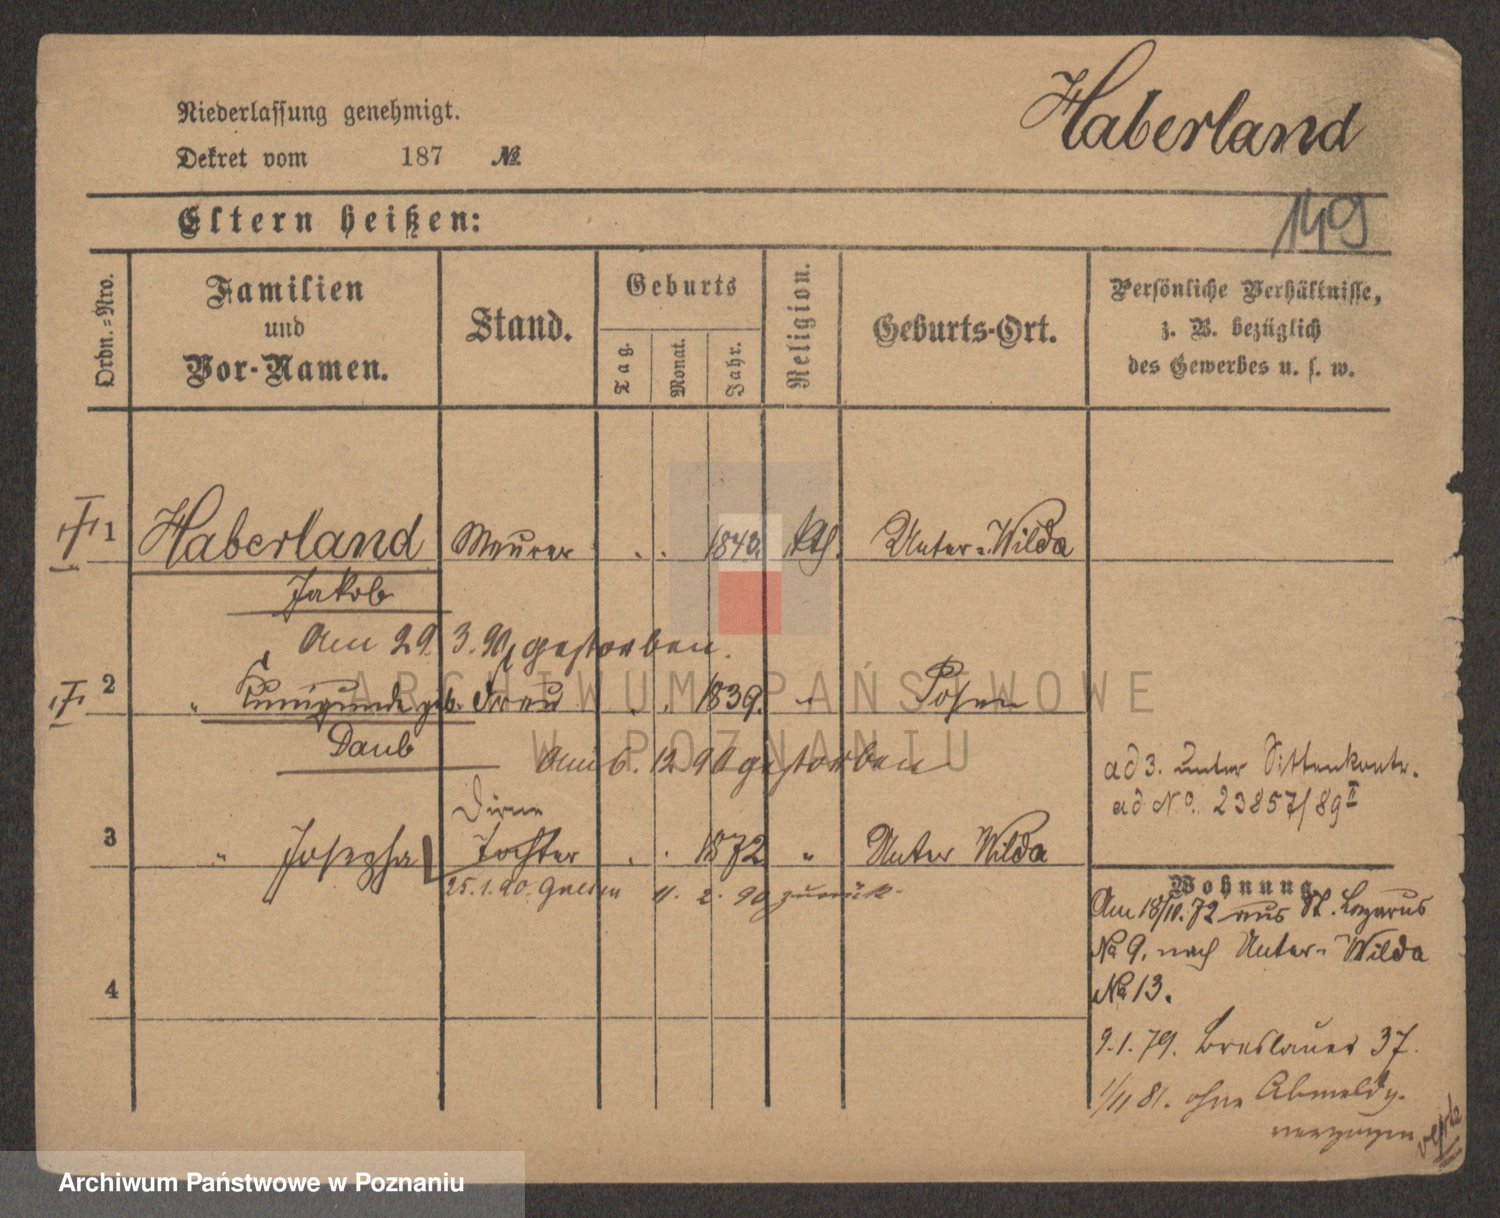 Niederlassung genehmigt.
Dekret vom 187 №
Haberland
149
Eltern heißen:
Ordn.=Nro.
Familien
und
Vor-Namen.
Stand.
Geburts
Tag.
Monat.
Jahr.
Religion.
Geburts-Ort.
Persönliche Verhältnisse,
z. B. bezüglich
des Gewerbes u. s. w.
1 Haberland Maurer . . 1843. kth. Unter-Wilda
Jakob
Am 29. 3. 90 gestorben.
2 " Kunigunde geb. Frau . . 1839. " Posen
Daub
Am 6. 12 90 gestorben
ad 3. unter Sittenkontr.
ad No. 23857/89 II
Dirne
3 " Josepha Tochter . . 1872 " Unter Wilda
25.1.90. Gnesen 11. 2. 90 zurück.
Wohnung
Am 18/10. 72 aus St. Lazarus
№ 9. nach Unter-Wilda
№ 13.
4
9.1.79. Breslauer 37.
1/11 81. ohne Abmeldg.
verzogen
ARCHIWUM PAŃSTWOWE
W POZNANIU
Archiwum Państwowe w Poznaniu